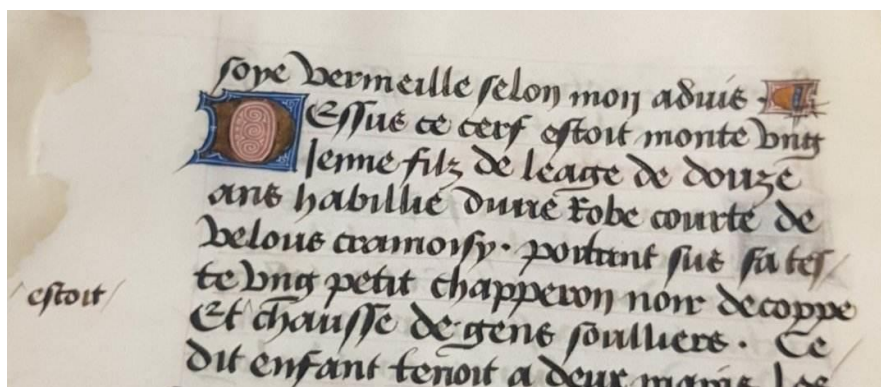 soye vermeille selon mon aduis .
DEssus ce cerf estoit monte vng
Jenne filz de leage de douze
ans habillie dune robe courte de
velous cramoisy. portant sus sa tes/
te vng petit chapperon noir decoppe
/estoit/
Et chausse de gens soulliers. Ce
dit enfant tenoit a deux mains les